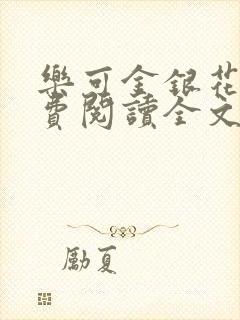 樂可金銀花
費閱讀全文
勵夏